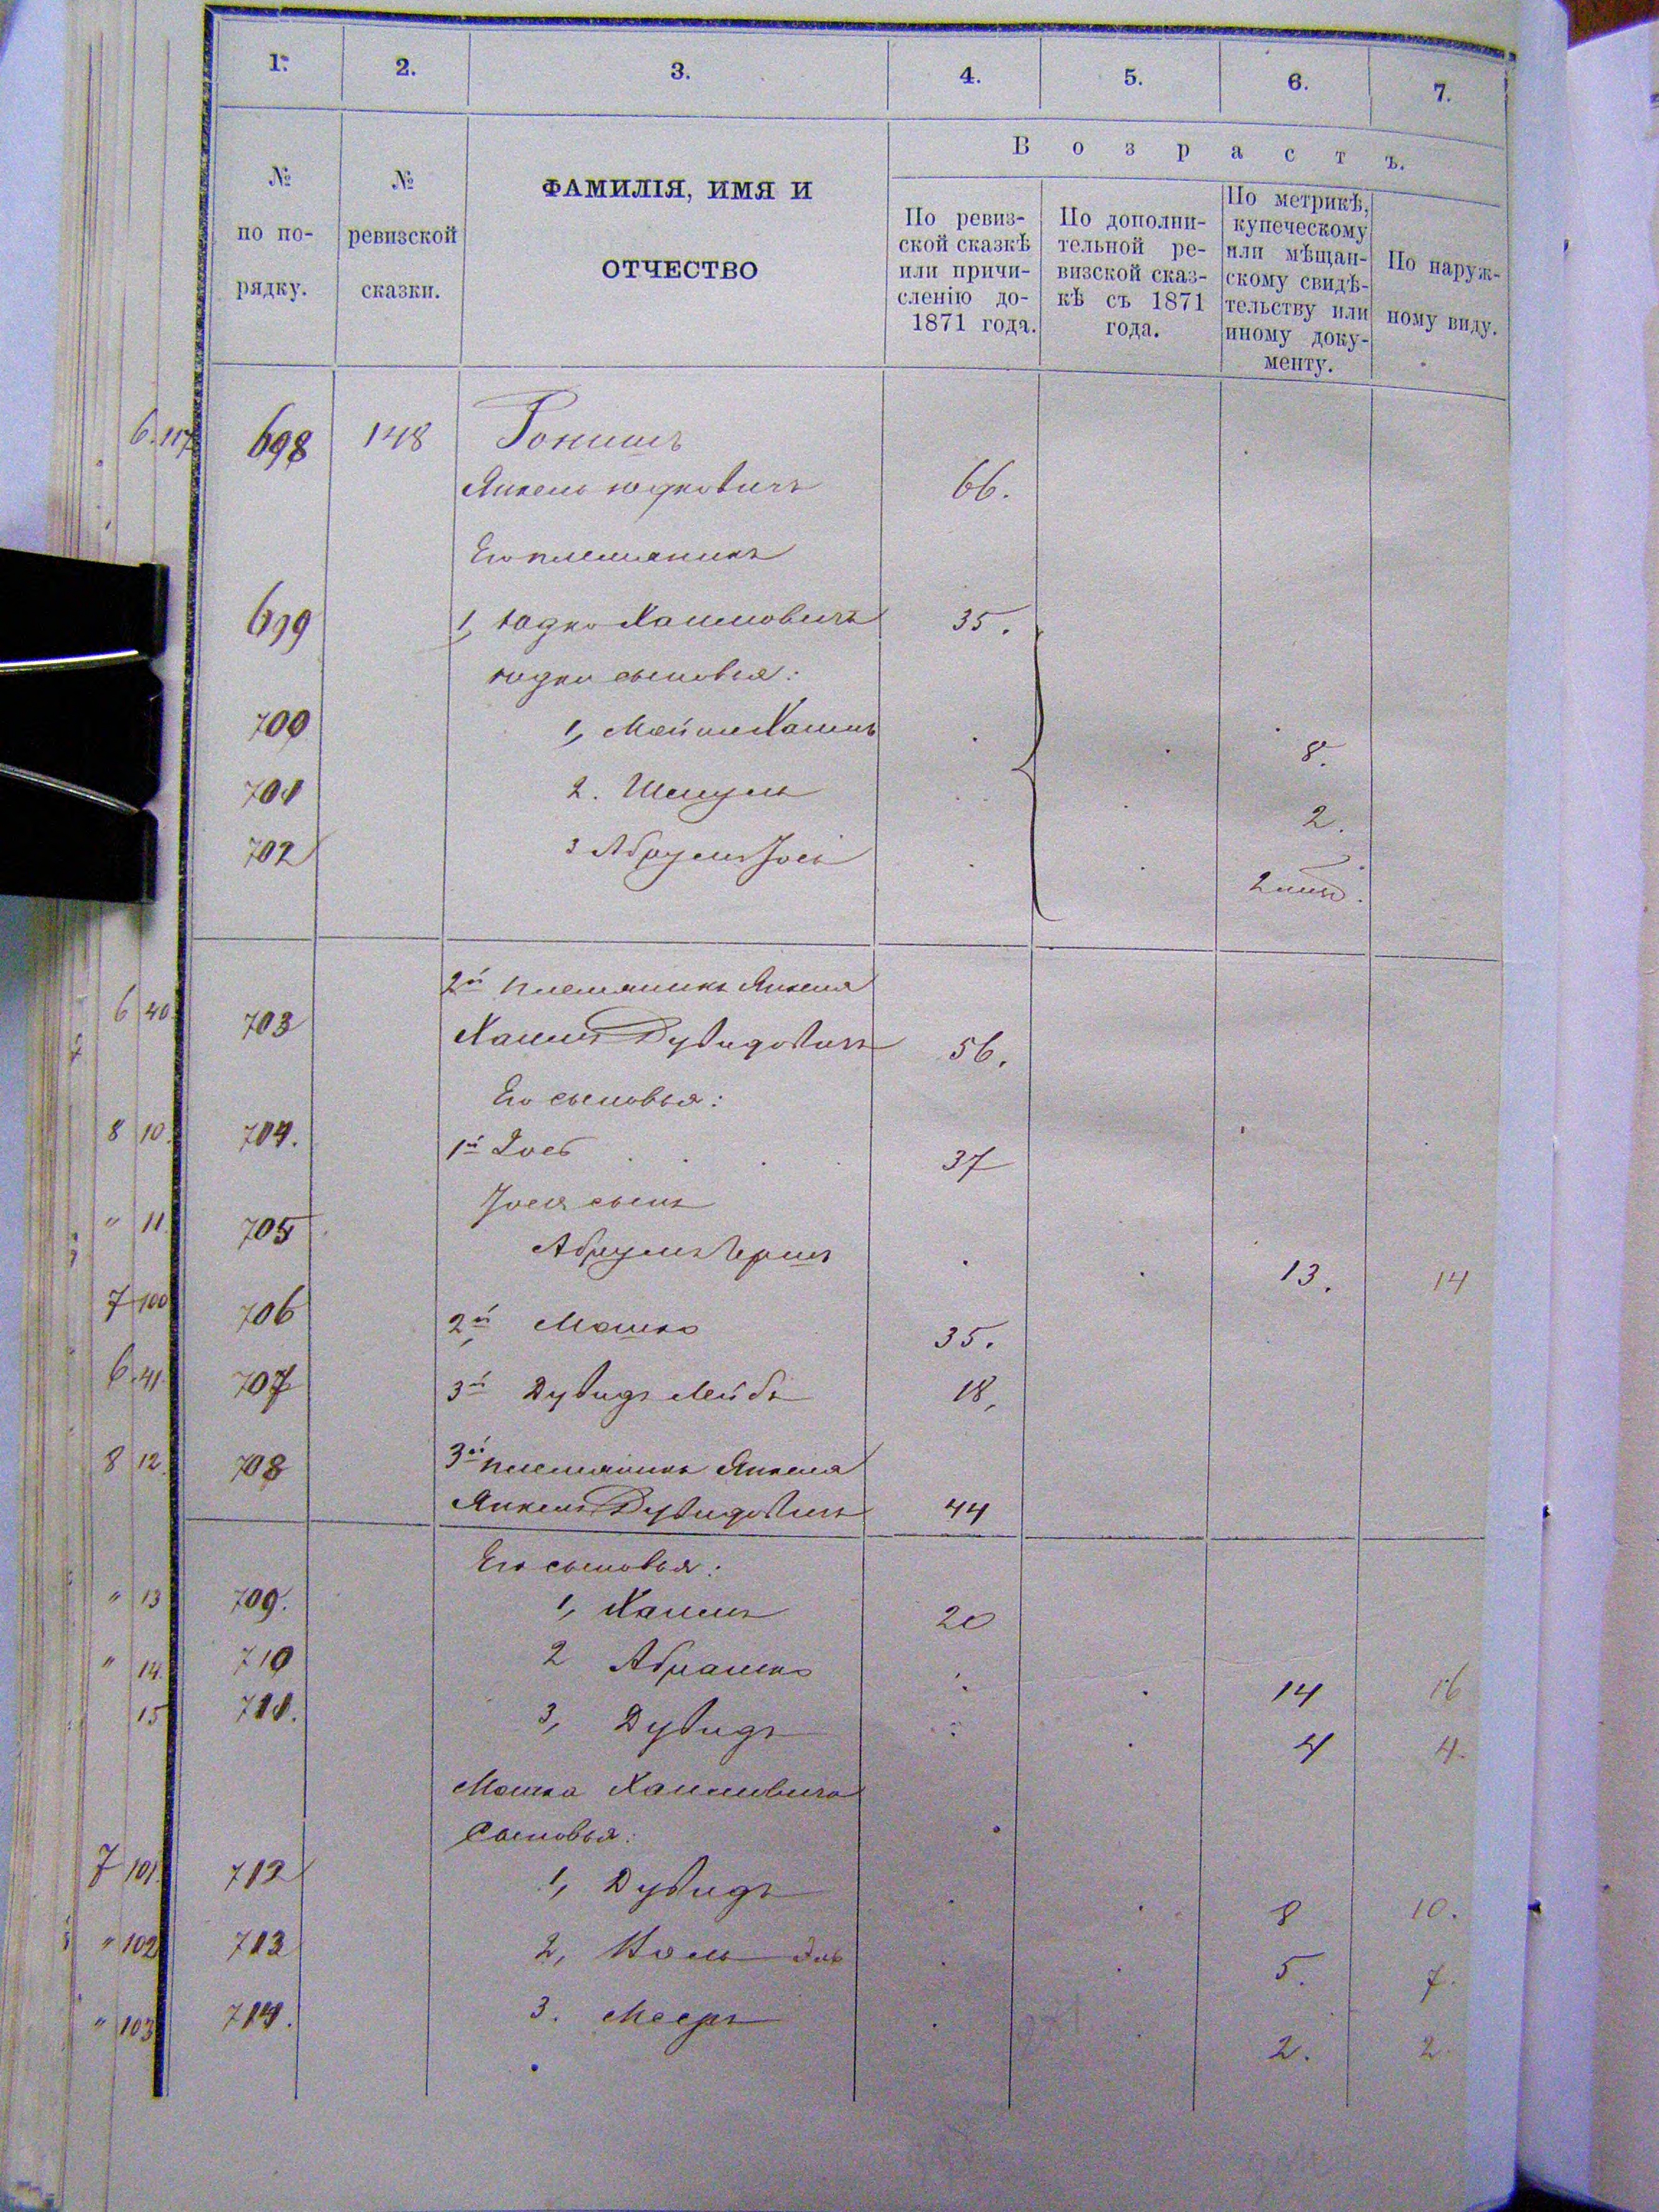 1. 2. 3. 4. 5. 6. 7.
№ по порядку.
№ ревизской сказки.
ФАМИЛІЯ, ИМЯ И
ОТЧЕСТВО
Возрастъ.
По ревиз-
ской сказкѣ
или причи-
сленію до-
1871 года.
По дополни-
тельной ре-
визской сказ-
кѣ съ 1871
года.
По метрикѣ,
купеческому
или мѣщан-
скому свидѣ-
тельству или
иному доку-
менту.
По наруж-
ному виду.
6. 117 698 148
Янкель Юдковичъ 66.
Его племянникъ
699 1, Юдко Хаимовичъ 35.
Юдки сыновья:
700 1, Хаимъ 8.
701 2. Шмуль 2.
702 3 Абрумъ Іосъ 2
2й племянникъ Янкеля
6 40 703 Хаимъ Дувидовичъ 56.
Его сыновья:
8 10. 704. 1й Іось 37
Іося сынъ
" 11 705 Абрумъ Гершъ 13. 14
7 100 706 2й Мошко 35.
6. 41 707 3й Дувидъ Лейбъ 18,
8 12. 708 3й племянникъ Янкеля
Янкель Дувидовичъ 44
Его сыновья:
" 13 709. 1, Хаимъ 20
" 14. 710 2 Абрамко 14 16
15 711. 3, Дувидъ 4 4.
Мошка Хаимовича
Сыновья:
7 101. 712 1, Дувидъ 8 10.
" 102 713 2, 5. 7.
" 103 714. 3. Мееръ 2. 2.